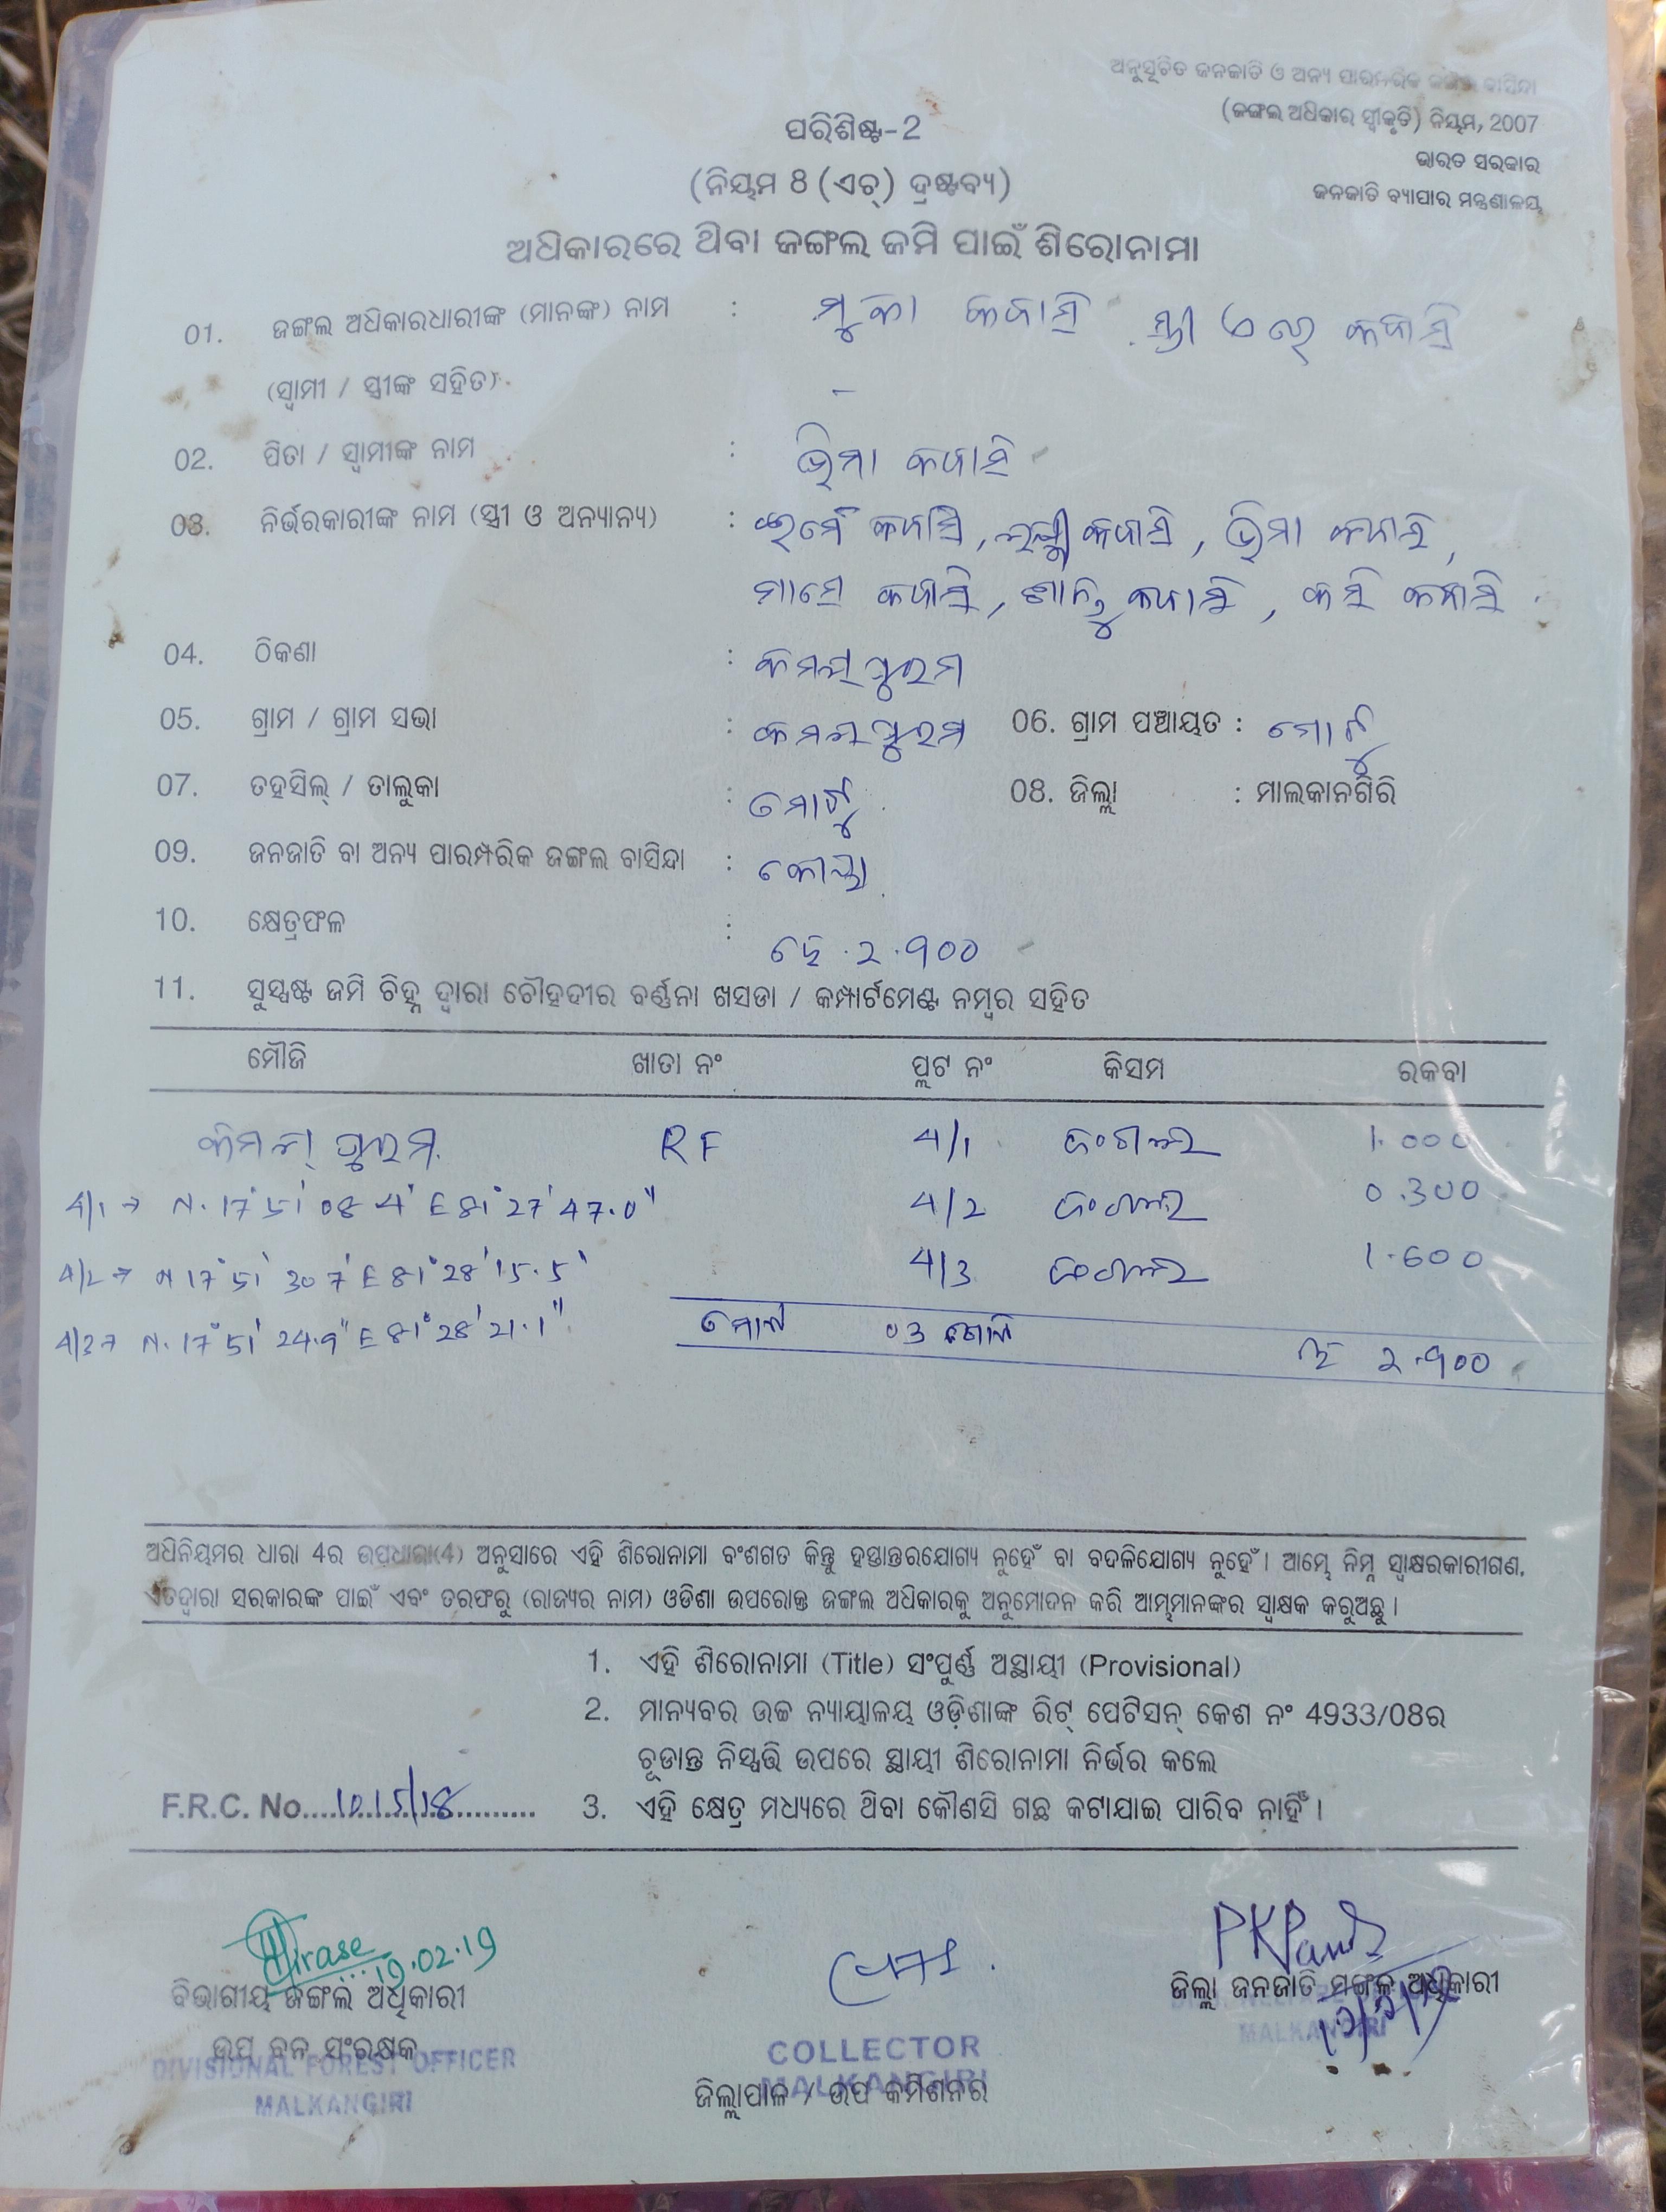 ଅନୁସୂଚିତ ଜନଜାତି ଓ ଅନ୍ୟ ପାରମ୍ପରିକ ଜଙ୍ଗଲ ବାସିନ୍ଦା
(ଜଙ୍ଗଲ ଅଧିକାର ସ୍ୱୀକୃତି) ନିୟମ, 2007
ଭାରତ ସରକାର
ଜନଜାତି ବ୍ୟାପାର ମନ୍ତ୍ରଣାଳୟ
ପରିଶିଷ୍ଟ-2
(ନିୟମ 8 (ଏଚ୍) ଦ୍ରଷ୍ଟବ୍ୟ)
ଅଧିକାରରେ ଥିବା ଜଙ୍ଗଲ ଜମି ପାଇଁ ଶିରୋନାମା
01. ଜଙ୍ଗଲ ଅଧିକାରଧାରୀଙ୍କ (ମାନଙ୍କ) ନାମ : ମୁକା
(ସ୍ୱାମୀ / ସ୍ତ୍ରୀଙ୍କ ସହିତ)
02. ପିତା / ସ୍ୱାମୀଙ୍କ ନାମ : ଭିମା
03. ନିର୍ଭରକାରୀଙ୍କ ନାମ (ସ୍ତ୍ରୀ ଓ ଅନ୍ୟାନ୍ୟ) : ଭିମା
04. ଠିକଣା : କମଲାପୁରମ
05. ଗ୍ରାମ / ଗ୍ରାମ ସଭା : କମଲାପୁରମ 06. ଗ୍ରାମ ପଞ୍ଚାୟତ : ମୋଟୁ
07. ତହସିଲ୍ / ତାଲୁକା : ମୋଟୁ 08. ଜିଲ୍ଲା : ମାଲକାନଗିରି
09. ଜନଜାତି ବା ଅନ୍ୟ ପାରମ୍ପରିକ ଜଙ୍ଗଲ ବାସିନ୍ଦା : କୋୟା
10. କ୍ଷେତ୍ରଫଳ : ହେ ୨.୯୦୦
11. ସୁସ୍ପଷ୍ଟ ଜମି ଚିହ୍ନ ଦ୍ୱାରା ଚୌହଦୀର ବର୍ଣ୍ଣନା ଖସଡା / କମ୍ପାର୍ଟମେଣ୍ଟ ନମ୍ବର ସହିତ
ମୌଜି ଖାତା ନଂ ପ୍ଲଟ ନଂ କିସମ ରକବା
କମଲାପୁରମ RF 4/1 ଜଂଗଲ 1.000
4/1 → N. 17° 51' 08 4' E 81° 27' 47.0" 4/2 ଜଂଗଲ 0.300
4/2 → N 17° 51' 30 7' E 81° 28' 15.5' 4/3 ଜଂଗଲ 1.600
4/3 → N. 17° 51' 24.9" E 81° 28' 21.1"
ମୋଟ 03 ଗୋଟି ହେ ୨.୯୦୦
ଅଧିନିୟମର ଧାରା 4ର ଉପଧାରା(4) ଅନୁସାରେ ଏହି ଶିରୋନାମା ବଂଶଗତ କିନ୍ତୁ ହସ୍ତାନ୍ତରଯୋଗ୍ୟ ନୁହେଁ ବା ବଦଳିଯୋଗ୍ୟ ନୁହେଁ। ଆମ୍ଭେ ନିମ୍ନ ସ୍ୱାକ୍ଷରକାରୀଗଣ,
ଏତଦ୍ୱାରା ସରକାରଙ୍କ ପାଇଁ ଏବଂ ତରଫରୁ (ରାଜ୍ୟର ନାମ) ଓଡିଶା ଉପରୋକ୍ତ ଜଙ୍ଗଲ ଅଧିକାରକୁ ଅନୁମୋଦନ କରି ଆମ୍ଭମାନଙ୍କର ସ୍ୱାକ୍ଷକ କରୁଅଛୁ।
1. ଏହି ଶିରୋନାମା (Title) ସଂପୂର୍ଣ୍ଣ ଅସ୍ଥାୟୀ (Provisional)
2. ମାନ୍ୟବର ଉଚ୍ଚ ନ୍ୟାୟାଳୟ ଓଡ଼ିଶାଙ୍କ ରିଟ୍ ପେଟିସନ୍ କେଶ ନଂ 4933/08ର
ଚୂଡାନ୍ତ ନିସ୍ପତ୍ତି ଉପରେ ସ୍ଥାୟୀ ଶିରୋନାମା ନିର୍ଭର କଲେ
F.R.C. No....1015/18.... 3. ଏହି କ୍ଷେତ୍ର ମଧ୍ୟରେ ଥିବା କୌଣସି ଗଛ କଟାଯାଇ ପାରିବ ନାହିଁ।
19.02.19 PKPanda
ବିଭାଗୀୟ ଜଙ୍ଗଲ ଅଧିକାରୀ ଜିଲ୍ଲା ଜନଜାତି ମଙ୍ଗଳ ଅଧିକାରୀ
ଉପ ବନ ସଂରକ୍ଷକ MALKANGIRI
DIVISIONAL FOREST OFFICER COLLECTOR
MALKANGIRI MALKANGIRI
ଜିଲ୍ଲାପାଳ / ଉପ କମିଶନର